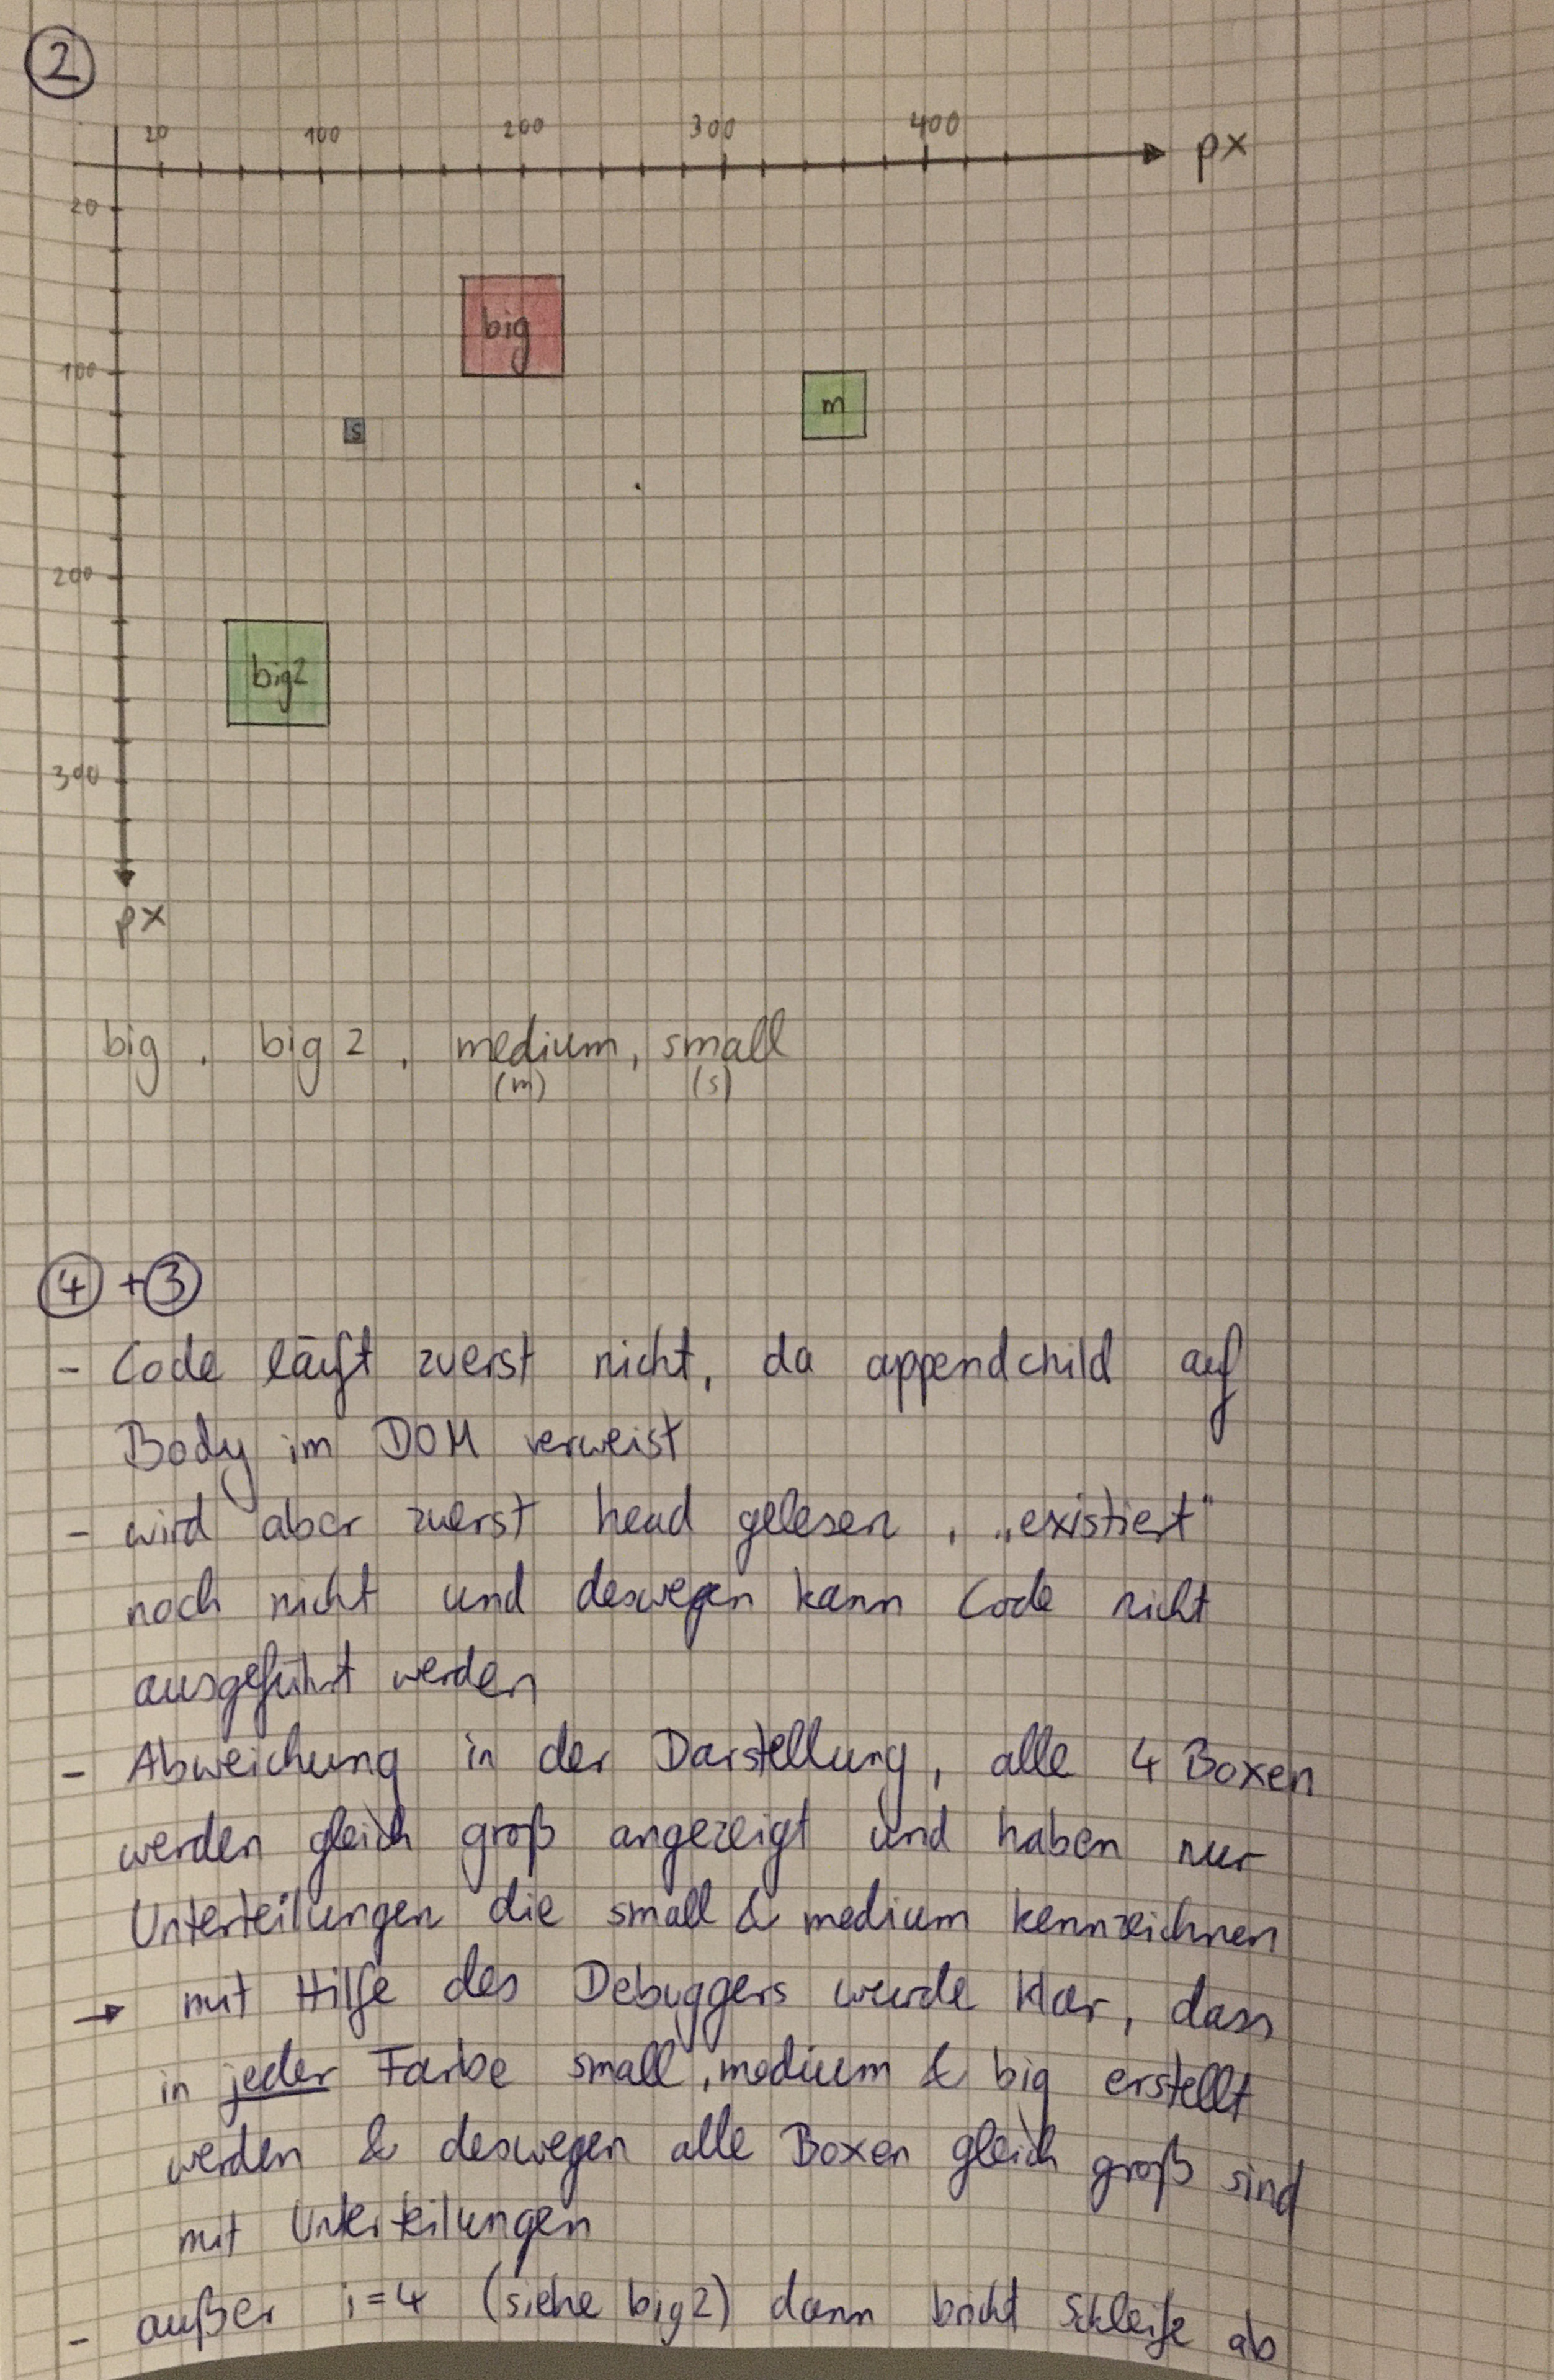 2
20 100 200 300 400 px
20
big
100
m
s
200
big2
300
px
big, big 2, medium, small
(m) (s)
4 + 3
- Code läuft zuerst nicht, da appendchild auf
Body im DOM verweist
- wird aber zuerst head gelesen, „existiert"
noch nicht und deswegen kann Code nicht
ausgeführt werden
- Abweichung in der Darstellung, alle 4 Boxen
werden gleich groß angezeigt und haben nur
Unterteilungen die small & medium kennzeichnen
→ mit Hilfe des Debuggers wurde klar, dass
in jeder Farbe small, medium & big erstellt
werden & deswegen alle Boxen gleich groß sind
mit Unterteilungen
- außer i=4 (siehe big2) dann bricht Schleife ab